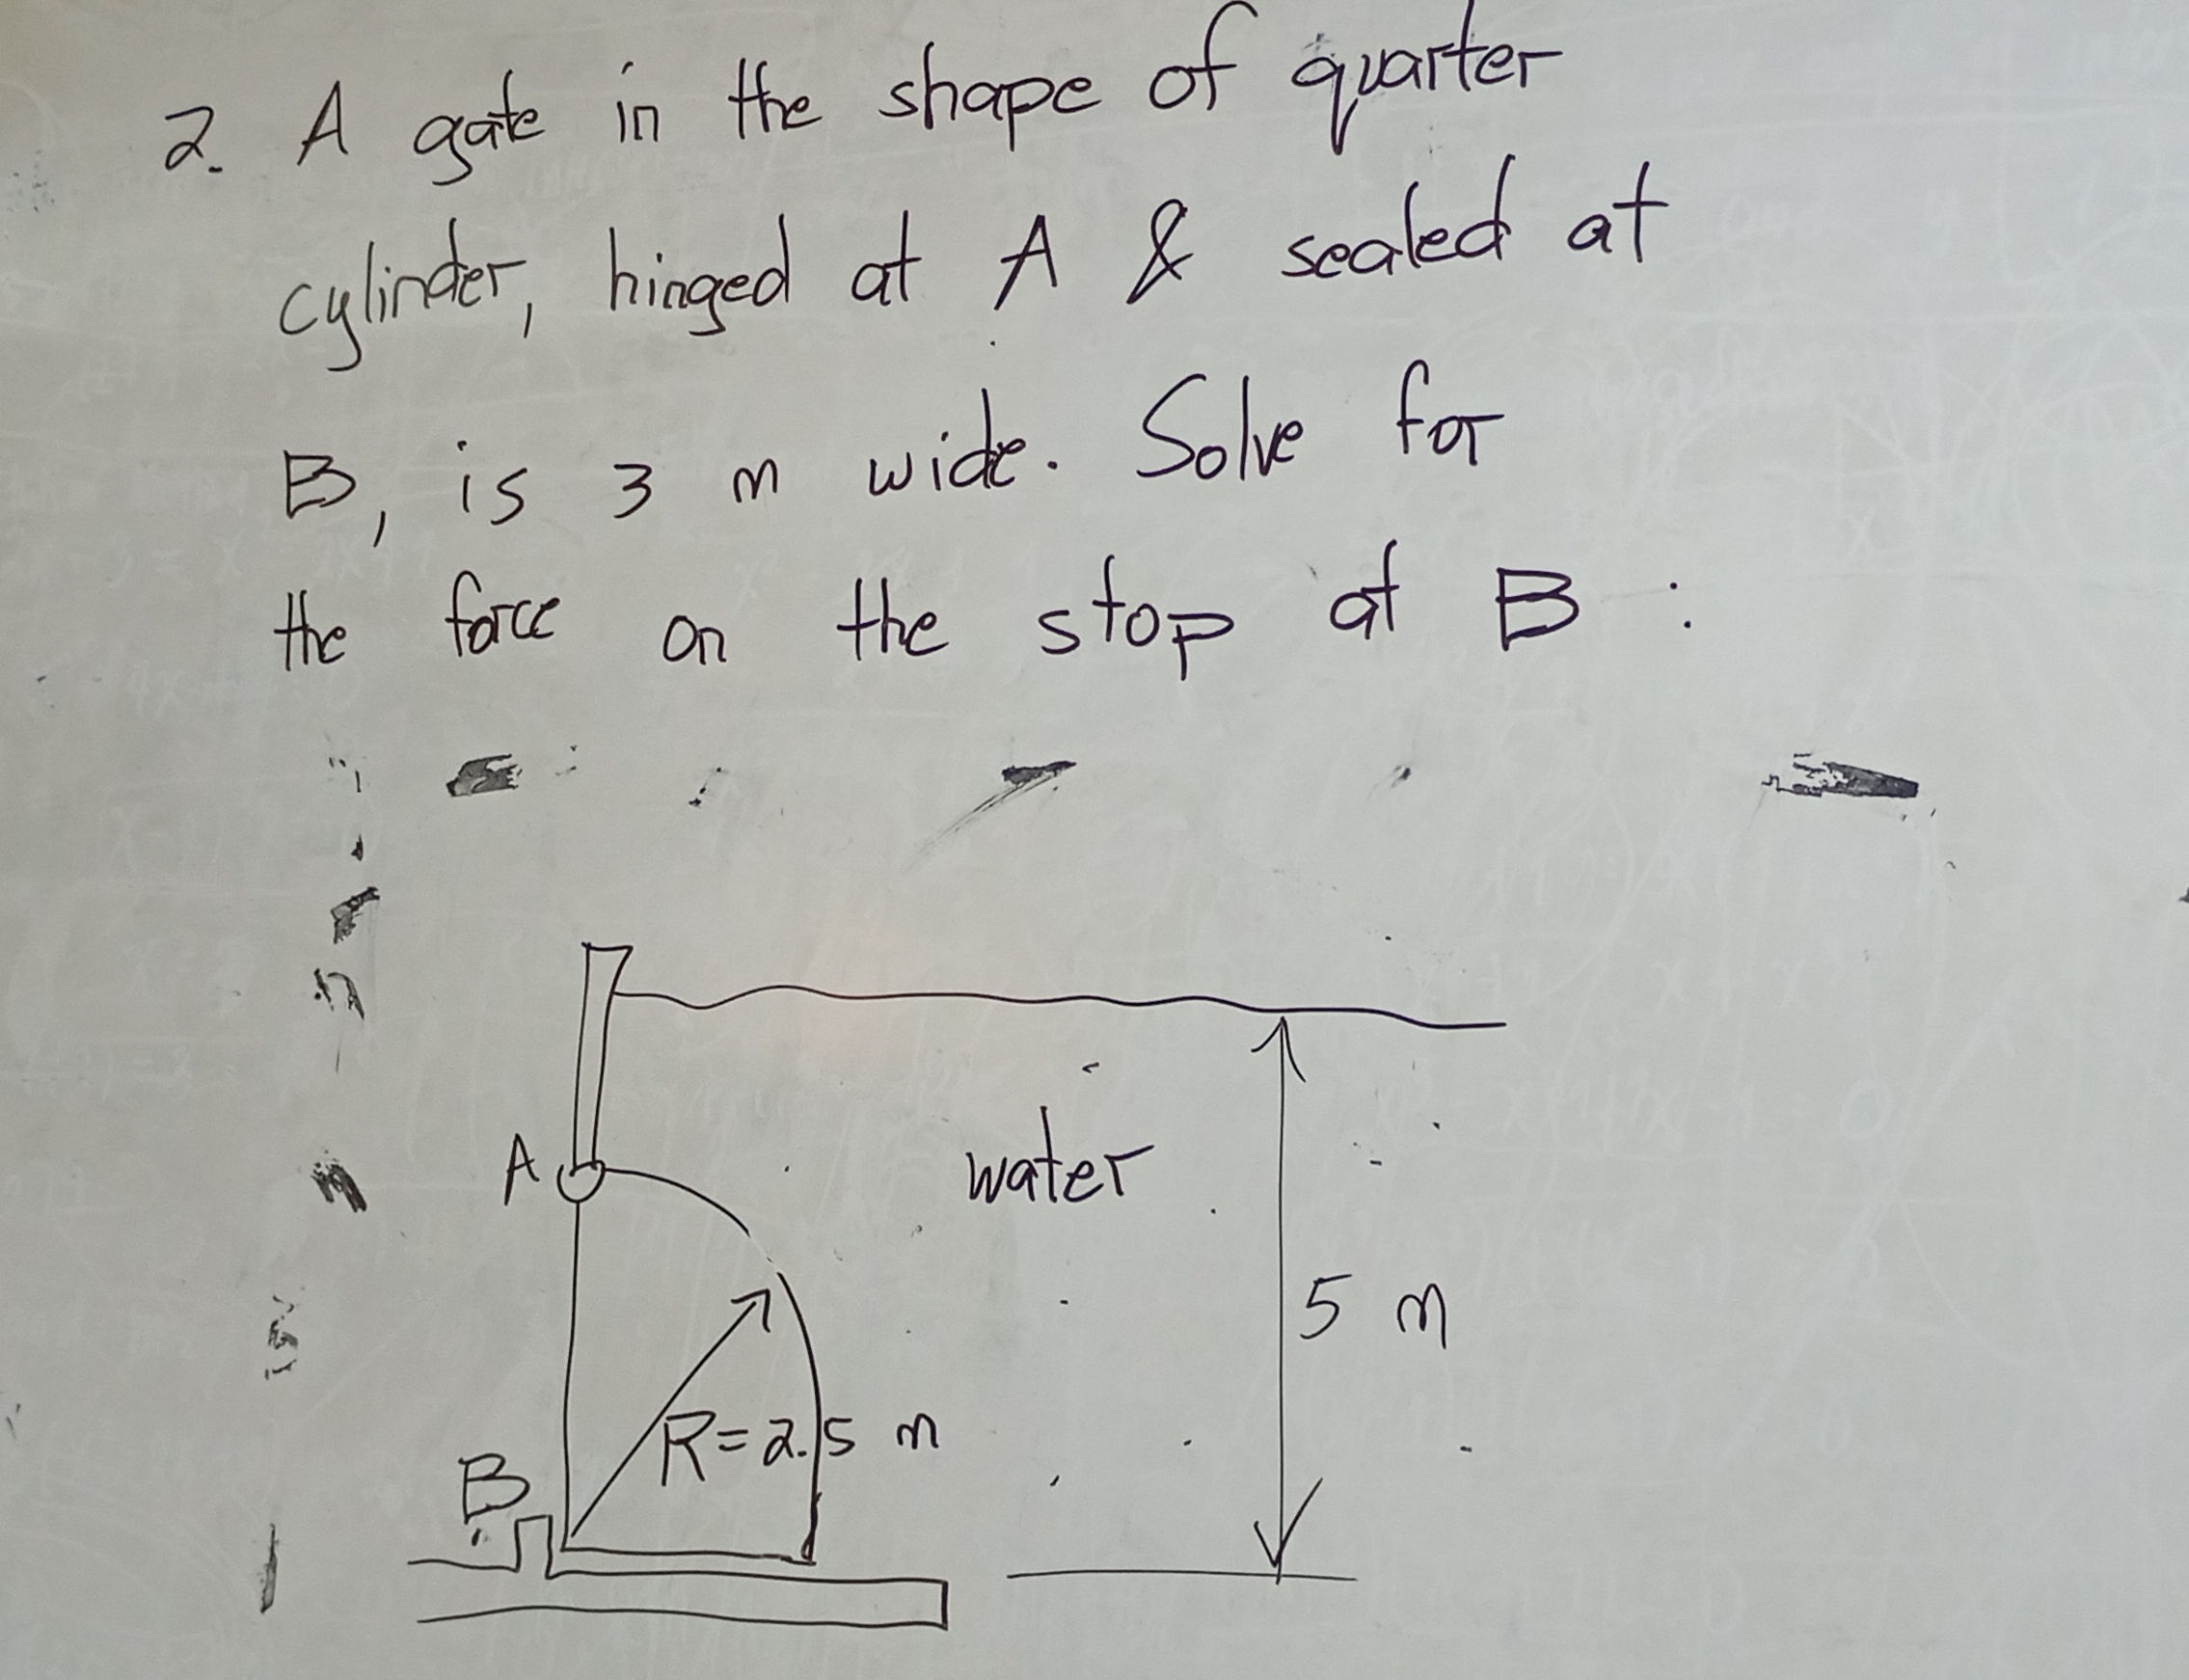 2. A gate in the shape of quarter
cylinder, hinged at A & sealed at
B, is 3 m wide. Solve for
the force on the stop at B :
A
water
5 m
R=2.5 m
B